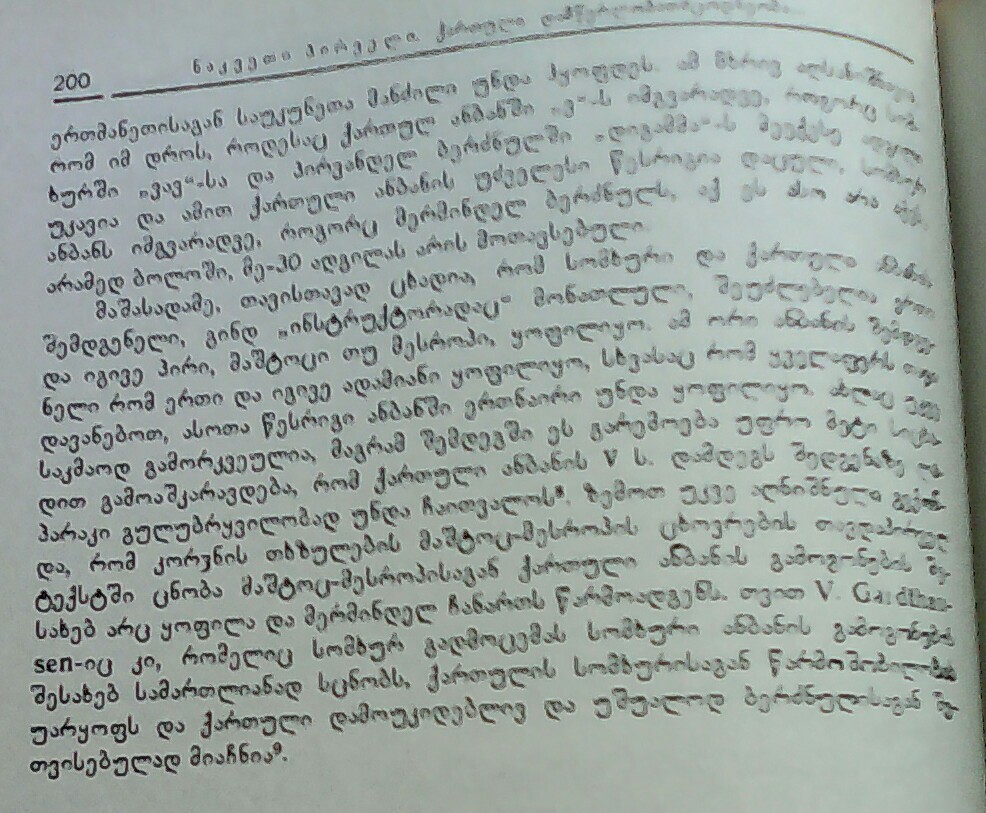 200 ნაკვეთი პირველი. ქართული დამწერლობათმცოდნეობა
ერთმანეთისაგან საუკუნეთა მანძილი უნდა ჰყოფდეს. ამ მხრივ აღსანიშნავია,
რომ იმ დროს, როდესაც ქართულ ანბანში „ვ“-ს იმგვარადვე, როგორც სომ-
ხურში „ვავ“-სა და პირვანდელ ბერძნულში „დიგამმა“-ს მეექვსე ადგილი
უკავია და ამით ქართული ანბანის უძველესი წესრიგია დაცული, სომხურ
ანბანს იმგვარადვე, როგორც მერმინდელ ბერძნულს, აქ ეს ასო არა აქვს,
არამედ ბოლოში, მე-30 ადგილას არის მოთავსებული.
მაშასადამე, თავისთავად ცხადია, რომ სომხური და ქართული ანბანის
შემდგენელი, გინდ „ინსტრუქტორადაც“ მონათლული, შეუძლებელია ერთი
და იგივე პირი, მაშტოცი თუ მესროპი, ყოფილიყო. ამ ორი ანბანის შემდგე-
ნელი რომ ერთი და იგივე ადამიანი ყოფილიყო, სხვასაც რომ ყველაფერს თავი
დავანებოთ, ასოთა წესრიგი ანბანში ერთნაირი უნდა ყოფილიყო. ახლაც უკვე
საკმაოდ გამორკვეულია, მაგრამ შემდეგში ეს გარემოება უფრო მეტი სიცხა-
დით გამოაშკარავდება, რომ ქართული ანბანის V ს. დამდეგს შედგენაზე ლა-
პარაკი გულუბრყვილობად უნდა ჩაითვალოს⁸. ზემოთ უკვე აღნიშნული გვქონ-
და, რომ კორჳნის თხზულების მაშტოც-მესროპის ცხოვრების თავდაპირველ
ტექსტში ცნობა მაშტოც-მესროპისაგან ქართული ანბანის გამოგონების შე-
სახებ არც ყოფილა და მერმინდელ ჩანართს წარმოადგენს. თვით V. Gardthau-
sen-იც კი, რომელიც სომხურ გადმოცემას სომხური ანბანის გამოგონების
შესახებ სამართლიანად სცნობს, ქართულის სომხურისაგან წარმოშობილობას
უარყოფს და ქართული დამოუკიდებლივ და უშუალოდ ბერძნულისაგან შე-
თვისებულად მიაჩნია⁹.